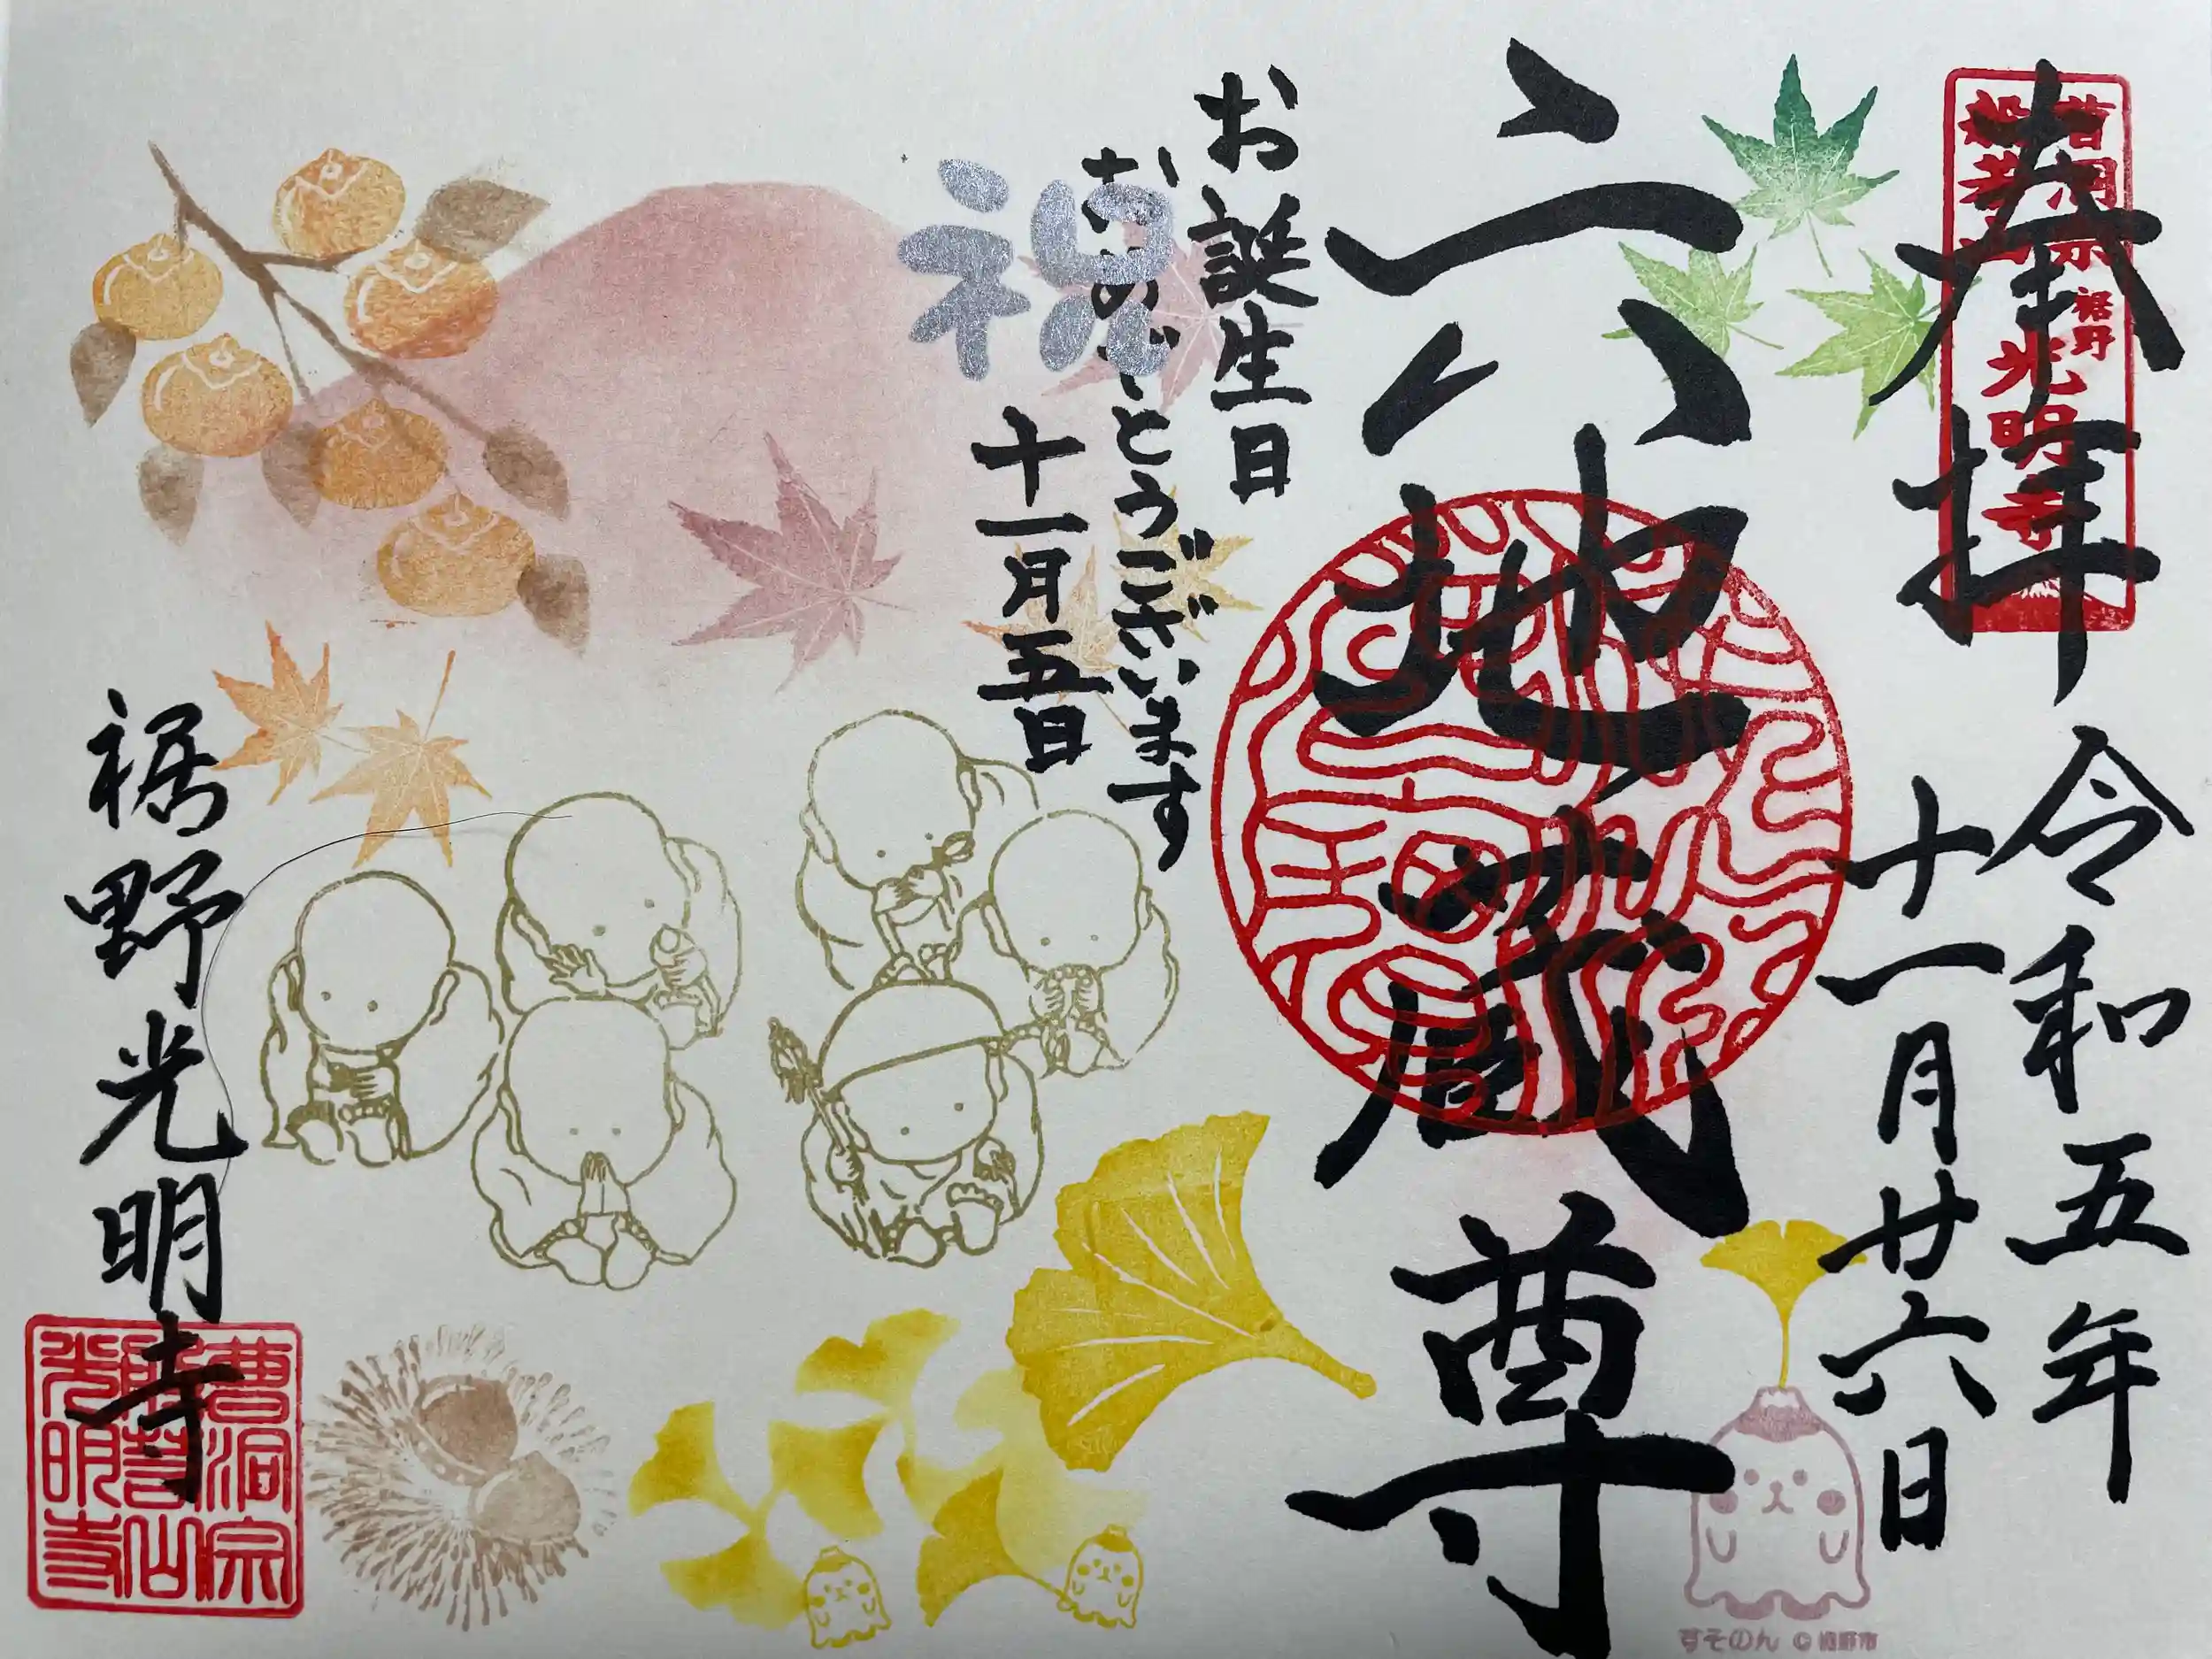 奉拝
令和五年
十一月廿六日
六地蔵尊
お誕生日
おめでとうございます
十一月五日
祝
裾野光明寺
裾野
光明寺
曹洞宗
光明寺
すそのん ©裾野市